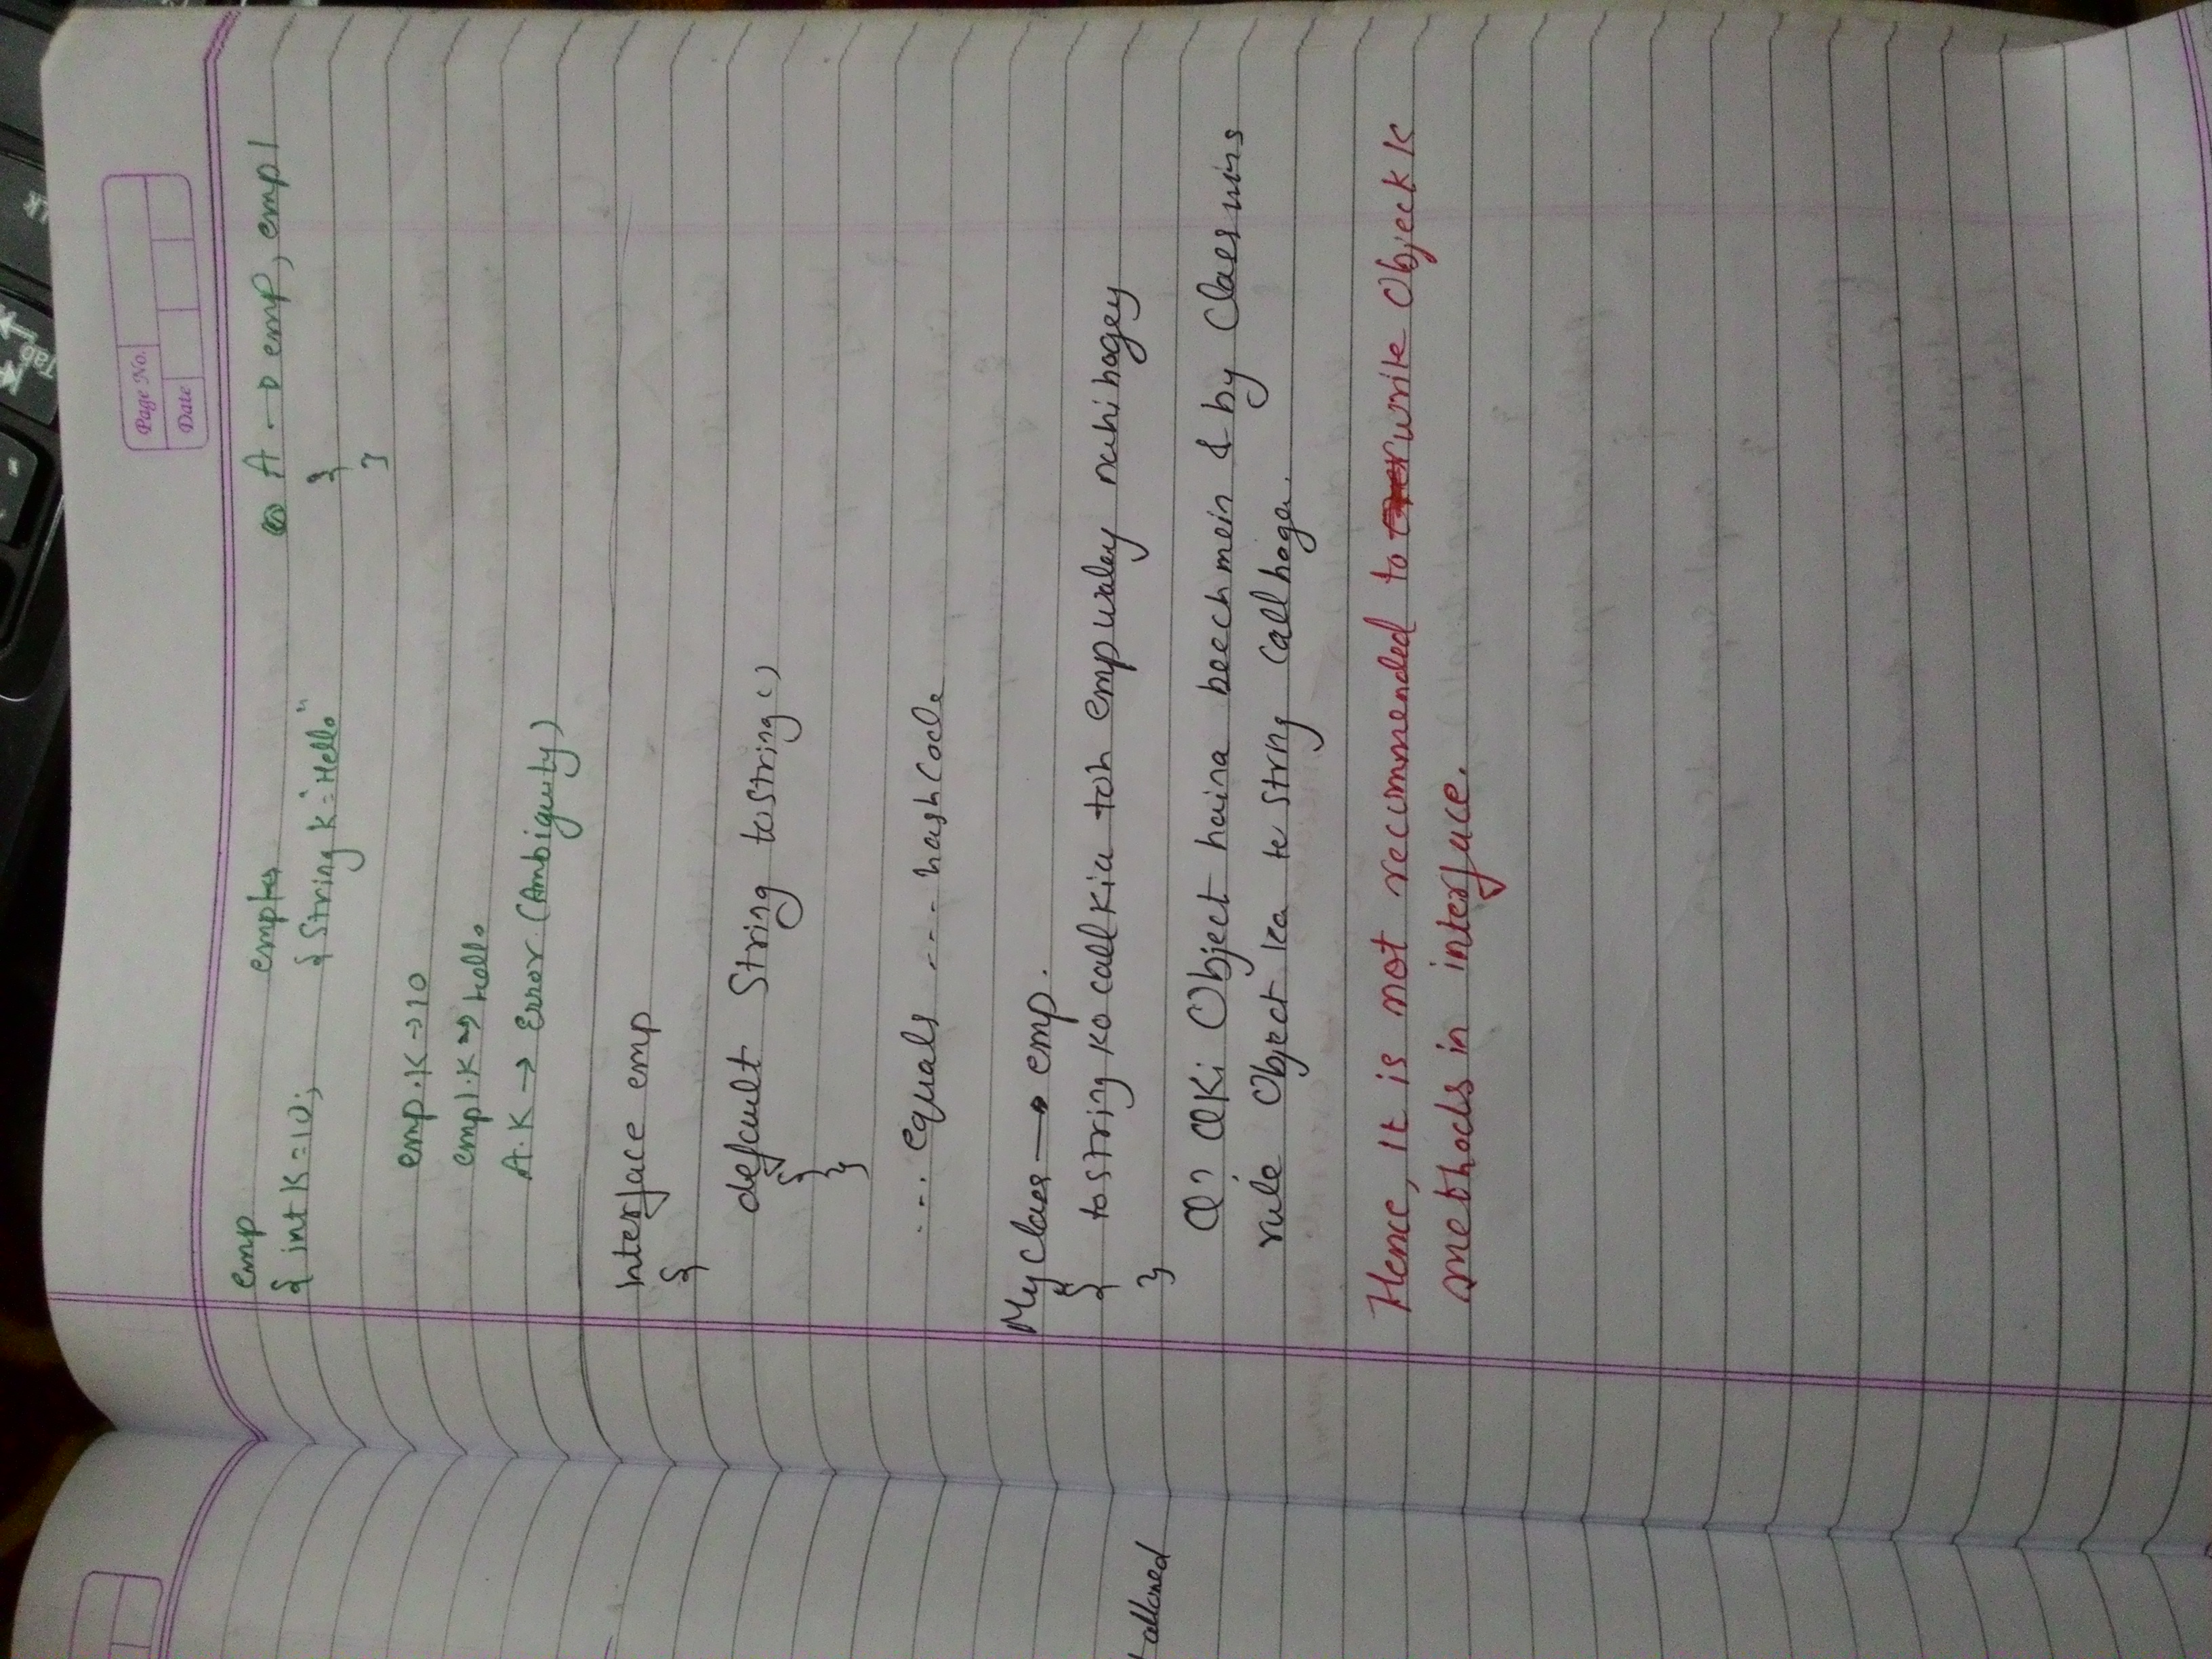 Tab
Page No.
Date
emp
emp
A → emp, emp1
{ int K=10;
{ String K="Hello"
{
}
emp.K → 10
emp1.K → Hello
A.K → Error (Ambiguity)
Interface emp
{
default String tostring()
{
}
... equals ... hashCode
My Class → emp.
{ tostring ko call kia toh emp waley nahi hogey
}
Q? Ki Object haina beech mein & by Class wins
rule Object ka to Strng call hoga.
allowed
Hence, It is not recommended to write Object k
methods in interface.